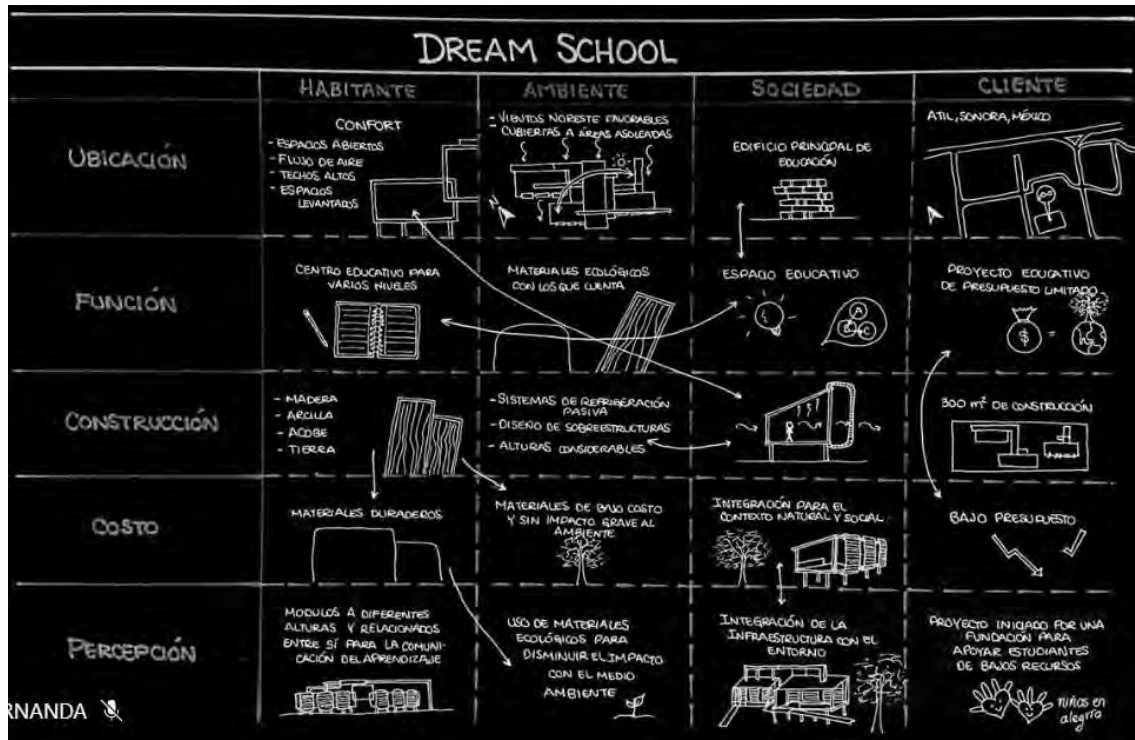 DREAM SCHOOL
HABITANTE
AMBIENTE
SOCIEDAD
CLIENTE
UBICACIÓN
CONFORT
- ESPACIOS ABIERTOS
- FLUJO DE AIRE
- TECHOS ALTOS
- ESPACIOS
LEVANTADOS
- VIENTOS NORESTE FAVORABLES
CUBIERTAS A ÁREAS ASOLEADAS
N
EDIFICIO PRINCIPAL DE
EDUCACIÓN
ATIL, SONORA, MÉXICO
FUNCIÓN
CENTRO EDUCATIVO PARA
VARIOS NIVELES
MATERIALES ECOLÓGICOS
CON LOS QUE CUENTA
ESPACIO EDUCATIVO
A
B
C
PROYECTO EDUCATIVO
DE PRESUPUESTO LIMITADO
$ =
CONSTRUCCIÓN
- MADERA
- ARCILLA
- ACOBE
- TIERRA
- SISTEMAS DE REFRIGERACIÓN
PASIVA
- DISEÑO DE SOBREESTRUCTURAS
- ALTURAS CONSIDERABLES
300 m² DE CONSTRUCCIÓN
COSTO
MATERIALES DURADEROS
MATERIALES DE BAJO COSTO
Y SIN IMPACTO GRAVE AL
AMBIENTE
INTEGRACIÓN PARA EL
CONTEXTO NATURAL Y SOCIAL
BAJO PRESUPUESTO
PERCEPCIÓN
MODULOS A DIFERENTES
ALTURAS Y RELACIONADOS
ENTRE SÍ PARA LA COMUNI-
CACIÓN DEL APRENDIZAJE
USO DE MATERIALES
ECOLÓGICOS PARA
DISMINUIR EL IMPACTO
CON EL MEDIO
AMBIENTE
INTEGRACIÓN DE LA
INFRAESTRUCTURA CON EL
ENTORNO
PROYECTO INICIADO POR UNA
FUNDACIÓN PARA
APOYAR ESTUDIANTES
DE BAJOS RECURSOS
niños en
alegría
RNANDA